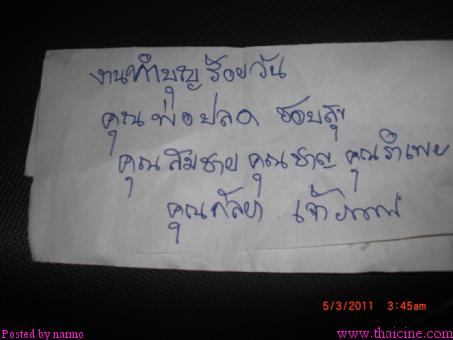 งานทำบุญร้อยวัน
คุณพ่อปลด ชอบสุข
คุณสมชาย คุณชาญ คุณรำเพย
คุณกัลยา เจ้าภาพ
5/3/2011 3:45am
Posted by narmo
www.thaicine.com